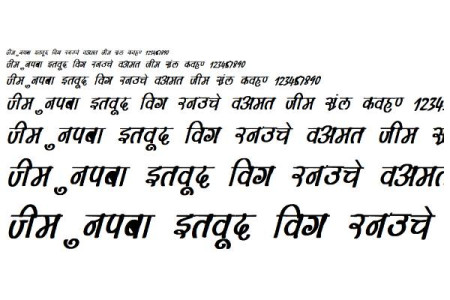 जीम ुनपबा इतवूद विग रनउचे वअमत जीम संल कवहण 1234567890
जीम ुनपबा इतवूद विग रनउचे वअमत जीम संल कवहण 1234567890
जीम ुनपबा इतवूद विग रनउचे वअमत जीम संल कवहण 1234567890
जीम ुनपबा इतवूद विग रनउचे वअमत जीम संल कवहण 1234
जीम ुनपबा इतवूद विग रनउचे वअमत जीम
जीम ुनपबा इतवूद विग रनउचे वअमत
जीम ुनपबा इतवूद विग रनउचे